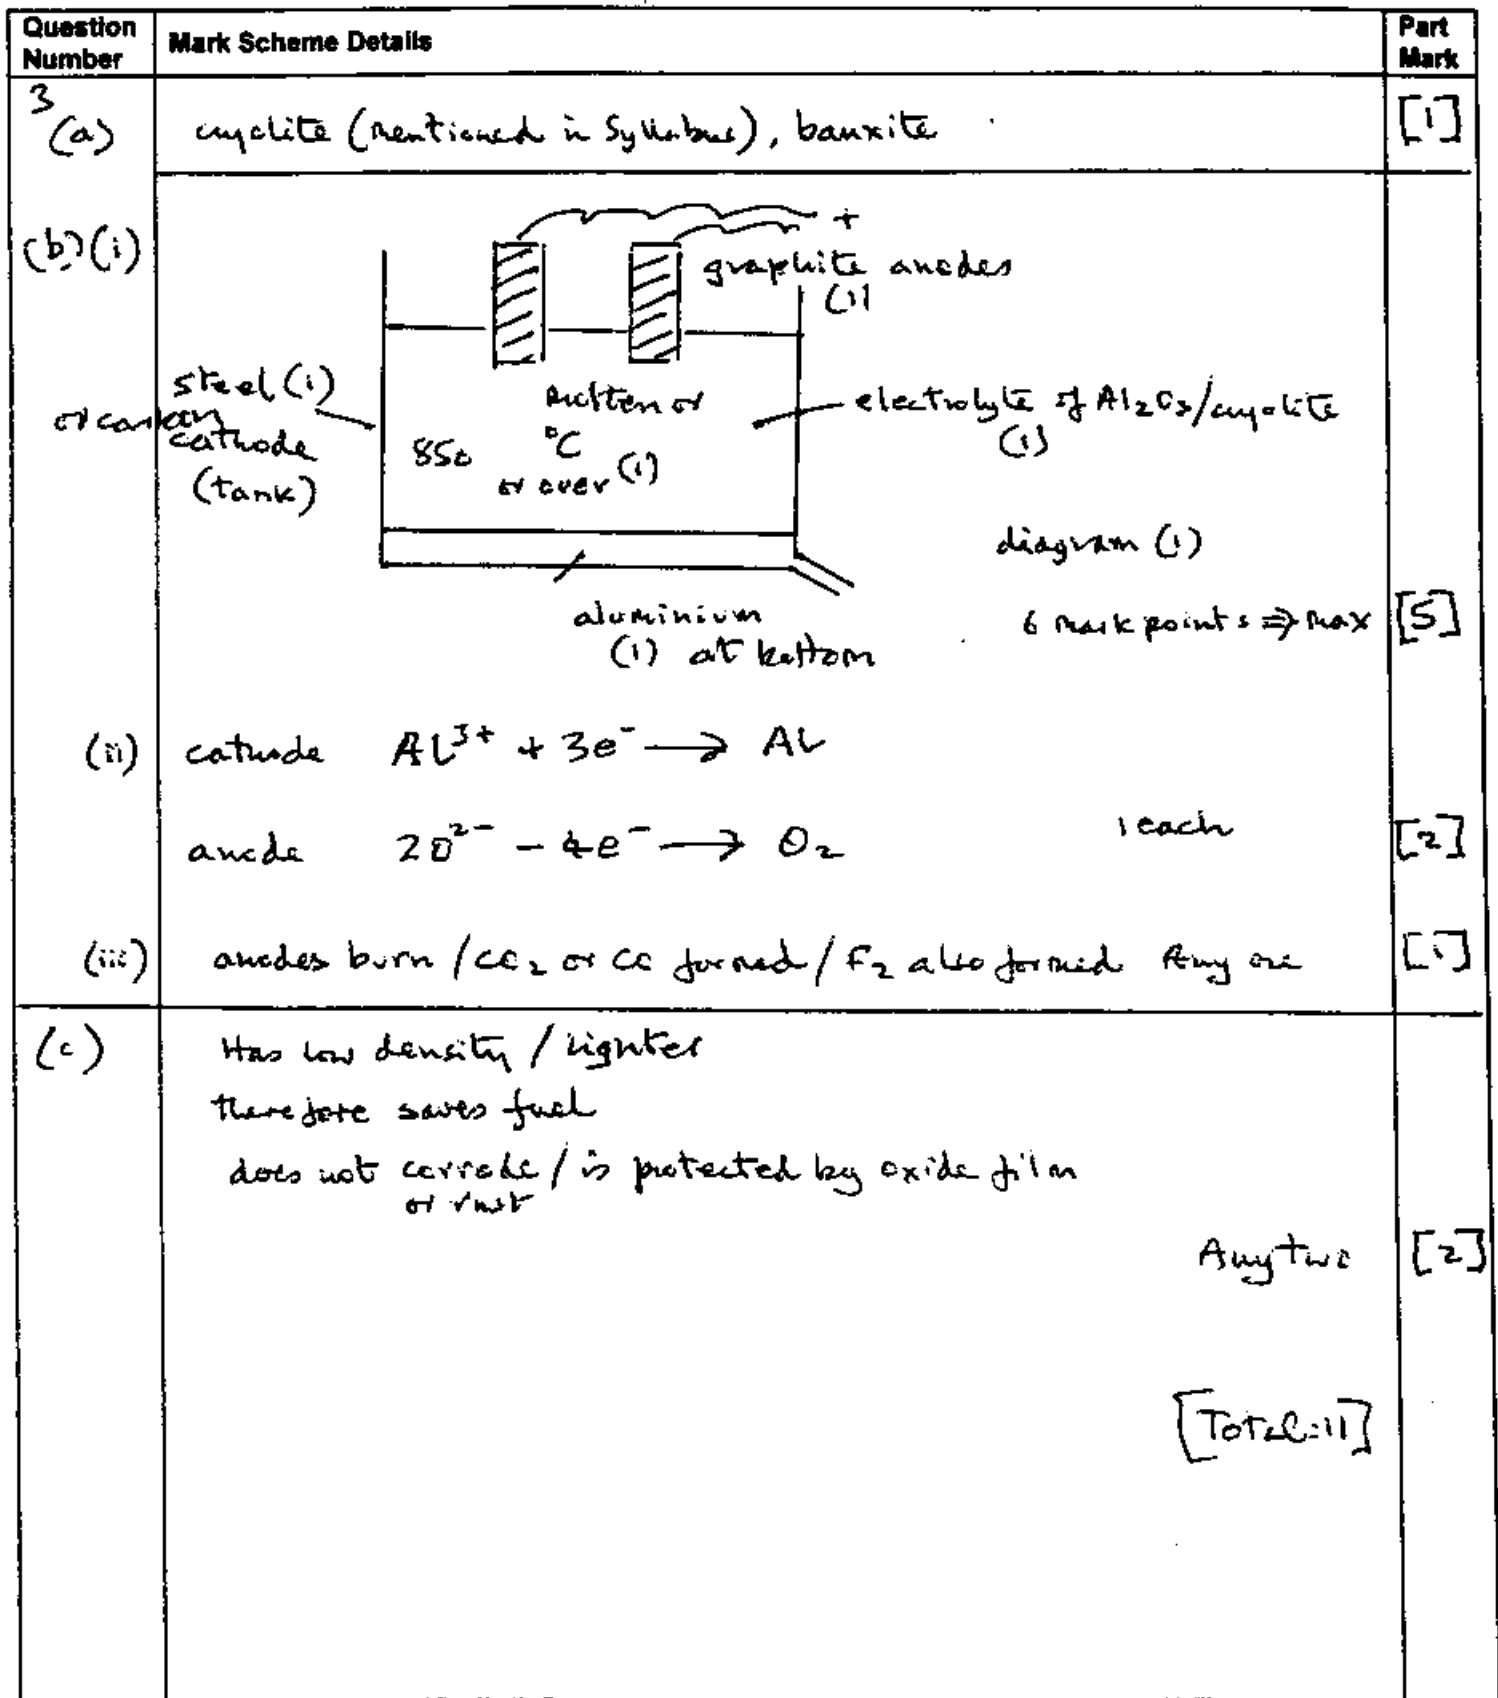 Question Number | Mark Scheme Details | Part Mark
3 (a) cryolite (mentioned in Syllabus), bauxite [1]
(b) (i)
+
graphite anodes
(1)
steel (1)
or carbon
cathode
(tank)
molten or
850 °C
or over (1)
electrolyte of Al₂O₃/cryolite
(1)
diagram (1)
aluminium
(1) at bottom
6 mark points ⇒ max [5]
(ii) cathode Al³⁺ + 3e⁻ → Al
anode 2O²⁻ - 4e⁻ → O₂ 1 each [2]
(iii) anodes burn / CO₂ or CO formed / F₂ also formed Any one [1]
(c) Has low density / lighter
therefore saves fuel
does not corrode / is protected by oxide film
or rust
Any two [2]
[Total=11]